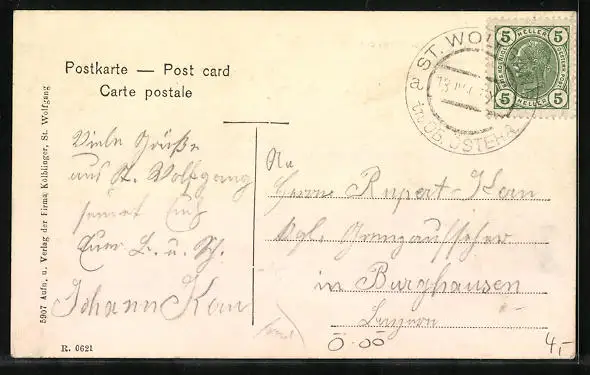 Postkarte — Post card
Carte postale
a ST. WOL
in OB. ÖSTERR.
5 HELLER 5
5 HELLER 5
5907 Aufn. u. Verlag der Firma Kölblinger, St. Wolfgang
Viele Grüße
aus St. Wolfgang
sendet Euch
Euer B. u. Sch.
Johann Kern
An
Herrn Rupert Kern
kgl. Grenzaufseher
in Burghausen
Bayern
R. 0621
0.00
4,-